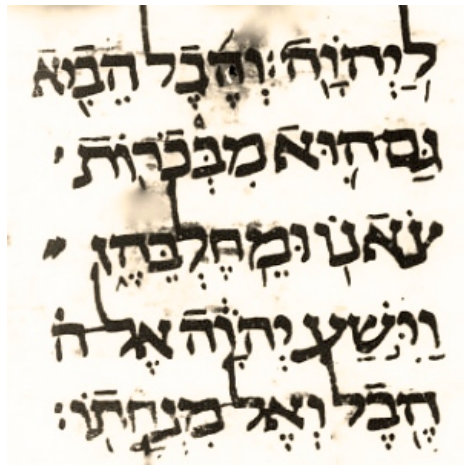 לַיהוָֹה׃ וְהֶבֶל הֵבִיא
גַּם הוּא מִבְּכֹרוֹת
צֹאנוֹ וּמֵחֶלְבֵהֶן
וַיִּשַׁע יְהוָֹה אֶל ה
הֶבֶל וְאֶל מִנְחָתוֹ׃